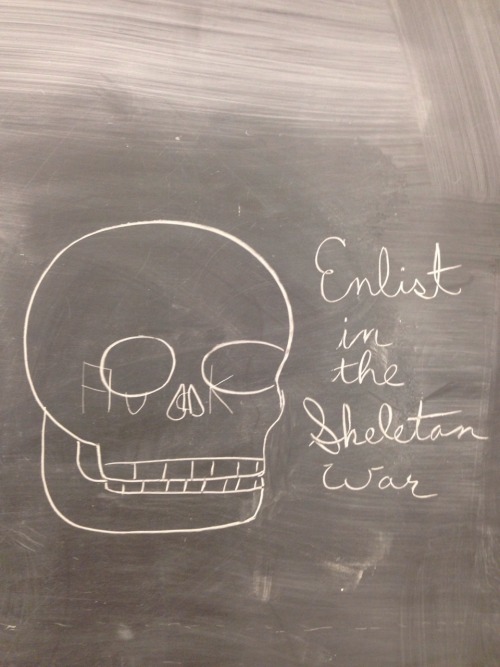 Enlist
in
the
Skeletan
War